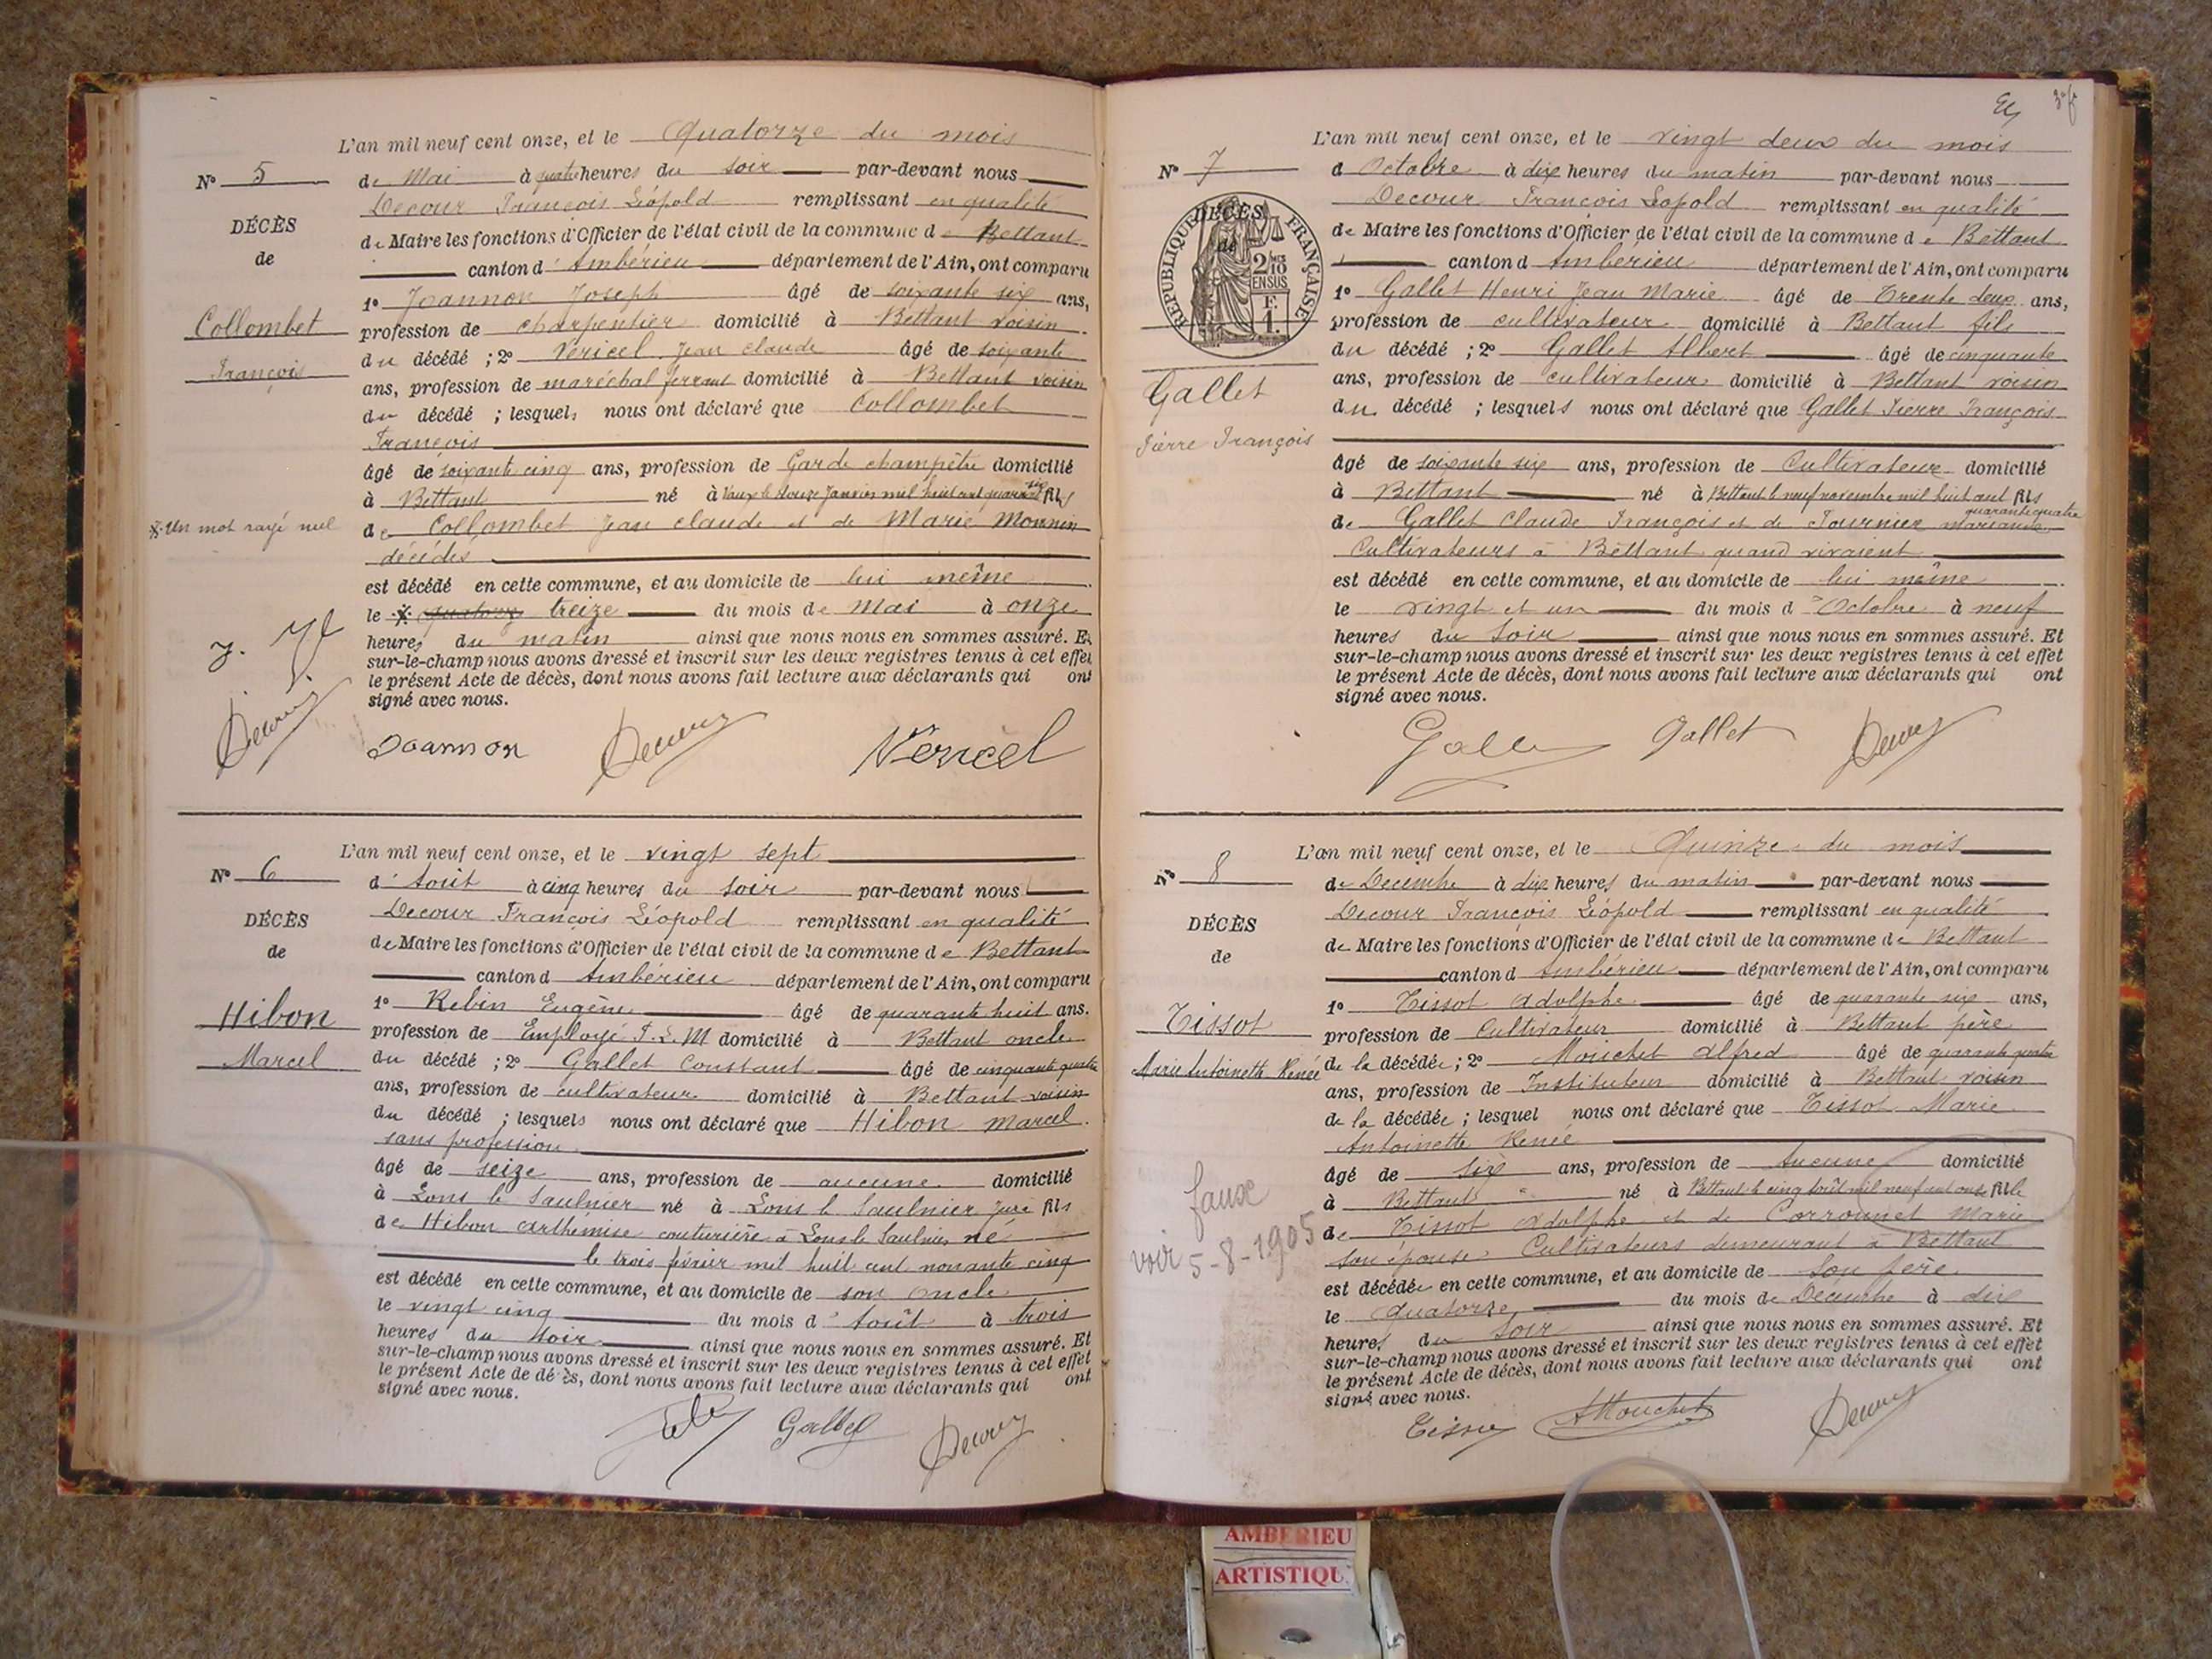 L'an mil neuf cent onze, et le Quatorze du mois
N° 5
de Mai à quatre heures du soir par-devant nous
Decour François Léopold remplissant en qualité
DÉCÈS
de Maire les fonctions d'Officier de l'état civil de la commune de Bettant
de
canton d'Ambérieu département de l'Ain, ont comparu
1° Joannon Joseph âgé de soixante six ans,
Collombet
profession de charpentier domicilié à Bettant voisin
du décédé ; 2° Vericel Jean Claude âgé de soixante
François
ans, profession de maréchal ferrant domicilié à Bettant voisin
du décédé ; lesquels nous ont déclaré que Collombet
François
âgé de soixante cinq ans, profession de Garde champêtre domicilié
à Bettant né à Vaux le douze Janvier mil huit cent quarante six fils
※ Un mot rayé nul
de Collombet Jean Claude et de Marie Monnin
décédés
est décédé en cette commune, et au domicile de lui même
le ※ quatorze treize du mois de Mai à onze
heures du matin ainsi que nous nous en sommes assuré. Et
sur-le-champ nous avons dressé et inscrit sur les deux registres tenus à cet effet
le présent Acte de décès, dont nous avons fait lecture aux déclarants qui ont
signé avec nous.
Decour Joannon Decour Vericel
L'an mil neuf cent onze, et le vingt sept
N° 6
d'Août à cinq heures du soir par-devant nous
Decour François Léopold remplissant en qualité
DÉCÈS
de Maire les fonctions d'Officier de l'état civil de la commune de Bettant
de
canton d Ambérieu département de l'Ain, ont comparu
1° Rebin Eugène âgé de quarante huit ans.
Hibon
profession de Employé P.L.M domicilié à Bettant oncle
Marcel
du décédé ; 2° Gallet Constant âgé de cinquante quatre
ans, profession de cultivateur domicilié à Bettant voisin
du décédé ; lesquels nous ont déclaré que Hibon Marcel
sans profession
âgé de seize ans, profession de aucune domicilié
à Lons le Saulnier né à Lons le Saulnier Jura fils
de Hibon Arthémise couturière à Lons le Saulnier né
le trois février mil huit cent nonante cinq
est décédé en cette commune, et au domicile de son oncle
le vingt cinq du mois d'Août à trois
heures du soir ainsi que nous nous en sommes assuré. Et
sur-le-champ nous avons dressé et inscrit sur les deux registres tenus à cet effet
le présent Acte de décès, dont nous avons fait lecture aux déclarants qui ont
signé avec nous.
Gallet Decour
L'an mil neuf cent onze, et le vingt deux du mois
N° 7
d Octobre à dix heures du matin par-devant nous
Decour François Léopold remplissant en qualité
RÉPUBLIQUE FRANÇAISE
DÉCÈS
de
2/10 EN SUS
F. 1.
de Maire les fonctions d'Officier de l'état civil de la commune de Bettant
canton d Ambérieu département de l'Ain, ont comparu
1° Gallet Henri Jean Marie âgé de Trente deux ans,
profession de cultivateur domicilié à Bettant fils
du décédé ; 2° Gallet Albert âgé de cinquante
Gallet
ans, profession de cultivateur domicilié à Bettant voisin
du décédé ; lesquels nous ont déclaré que Gallet Pierre François
Pierre François
âgé de soixante six ans, profession de Cultivateur domicilié
à Bettant né à Bettant le neuf novembre mil huit cent quarante quatre fils
de Gallet Claude François et de Tournier Marianne
Cultivateurs à Bettant quand vivaient
est décédé en cette commune, et au domicile de lui même
le vingt et un du mois d'Octobre à neuf
heures du soir ainsi que nous nous en sommes assuré. Et
sur-le-champ nous avons dressé et inscrit sur les deux registres tenus à cet effet
le présent Acte de décès, dont nous avons fait lecture aux déclarants qui ont
signé avec nous.
Gallet Gallet Decour
L'an mil neuf cent onze, et le Quinze du mois
N° 8
de Decembre à dix heures du matin par-devant nous
Decour François Léopold remplissant en qualité
DÉCÈS
de Maire les fonctions d'Officier de l'état civil de la commune de Bettant
de
canton d Ambérieu département de l'Ain, ont comparu
1° Tissot Adolphe âgé de quarante six ans,
Tissot
profession de Cultivateur domicilié à Bettant père
Marie Antoinette Renée
de la décédée ; 2° Mouchet Alfred âgé de quarante quatre
ans, profession de Instituteur domicilié à Bettant voisin
de la décédée ; lesquel nous ont déclaré que Tissot Marie
Antoinette Renée
âgé de six ans, profession de Aucune domicilié
à Bettant né à Bettant le cinq Août mil neuf cent onze fille
faux
voir 5-8-1905
de Tissot Adolphe et de Corronnet Marie
son épouse Cultivateurs demeurant à Bettant
est décédée en cette commune, et au domicile de son père
le Quatorze du mois de Decembre à dix
heures du soir ainsi que nous nous en sommes assuré. Et
sur-le-champ nous avons dressé et inscrit sur les deux registres tenus à cet effet
le présent Acte de décès, dont nous avons fait lecture aux déclarants qui ont
signé avec nous.
Tissot AMouchet Decour
AMBERIEU
ARTISTIQU